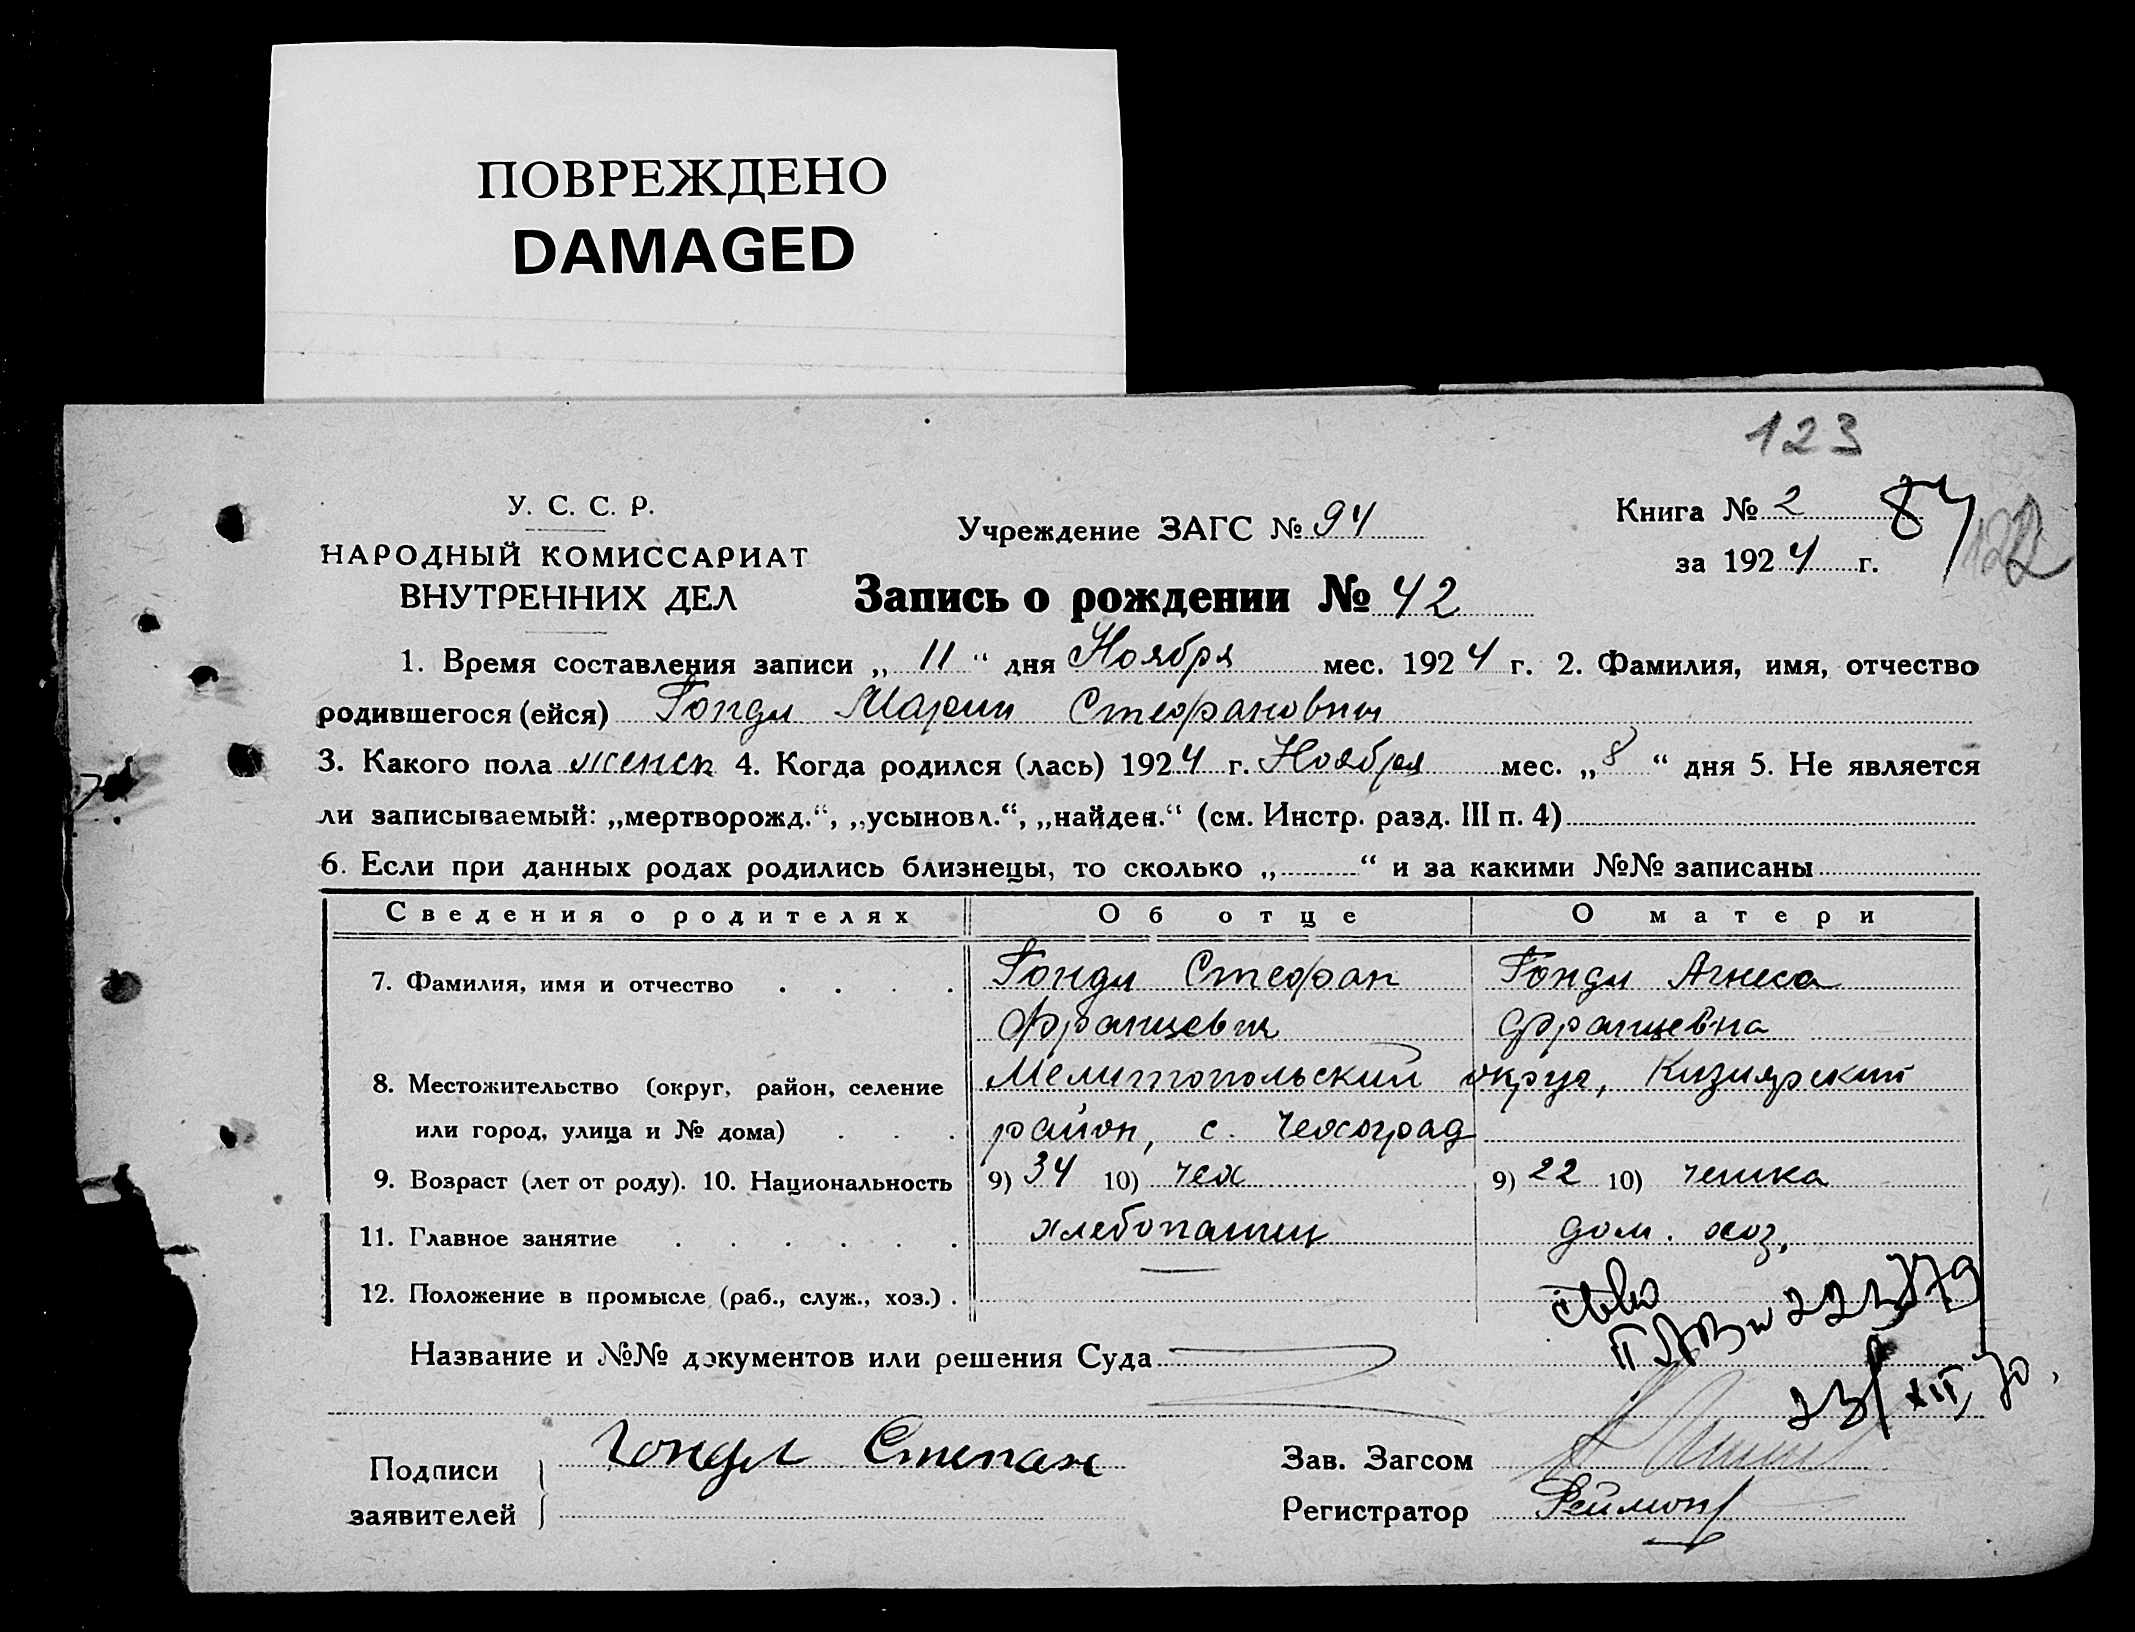 ПОВРЕЖДЕНО
DAMAGED
123
У. С. С. Р.
НАРОДНЫЙ КОМИССАРИАТ
ВНУТРЕННИХ ДЕЛ
Учреждение ЗАГС № 94
Книга № 2 87 122
за 1924 г.
Запись о рождении № 42
1. Время составления записи „ 11 “ дня Ноября мес. 1924 г. 2. Фамилия, имя, отчество
родившегося (ейся) Гондл Марии Стефановны
3. Какого пола женск 4. Когда родился (лась) 1924 г. Ноября мес. „ 8 “ дня 5. Не является
ли записываемый: „мертворожд.“, „усыновл.“, „найден.“ (см. Инстр. разд. III п. 4)
6. Если при данных родах родились близнецы, то сколько „ “ и за какими №№ записаны
Сведения о родителях Об отце О матери
7. Фамилия, имя и отчество Гондл Стефан Гондл Агнеса
Францевич Францевна
8. Местожительство (округ, район, селение Мелитопольский округ, Кизиярский
или город, улица и № дома) район, с. Чехоград
9. Возраст (лет от роду). 10. Национальность 9) 34 10) чех 9) 22 10) чешка
11. Главное занятие хлебопашец дом. хоз,
12. Положение в промысле (раб., служ., хоз.)
Название и №№ документов или решения Суда
23/XII, 70.
Подписи заявителей Гондл Степан
Зав. Загсом
Регистратор